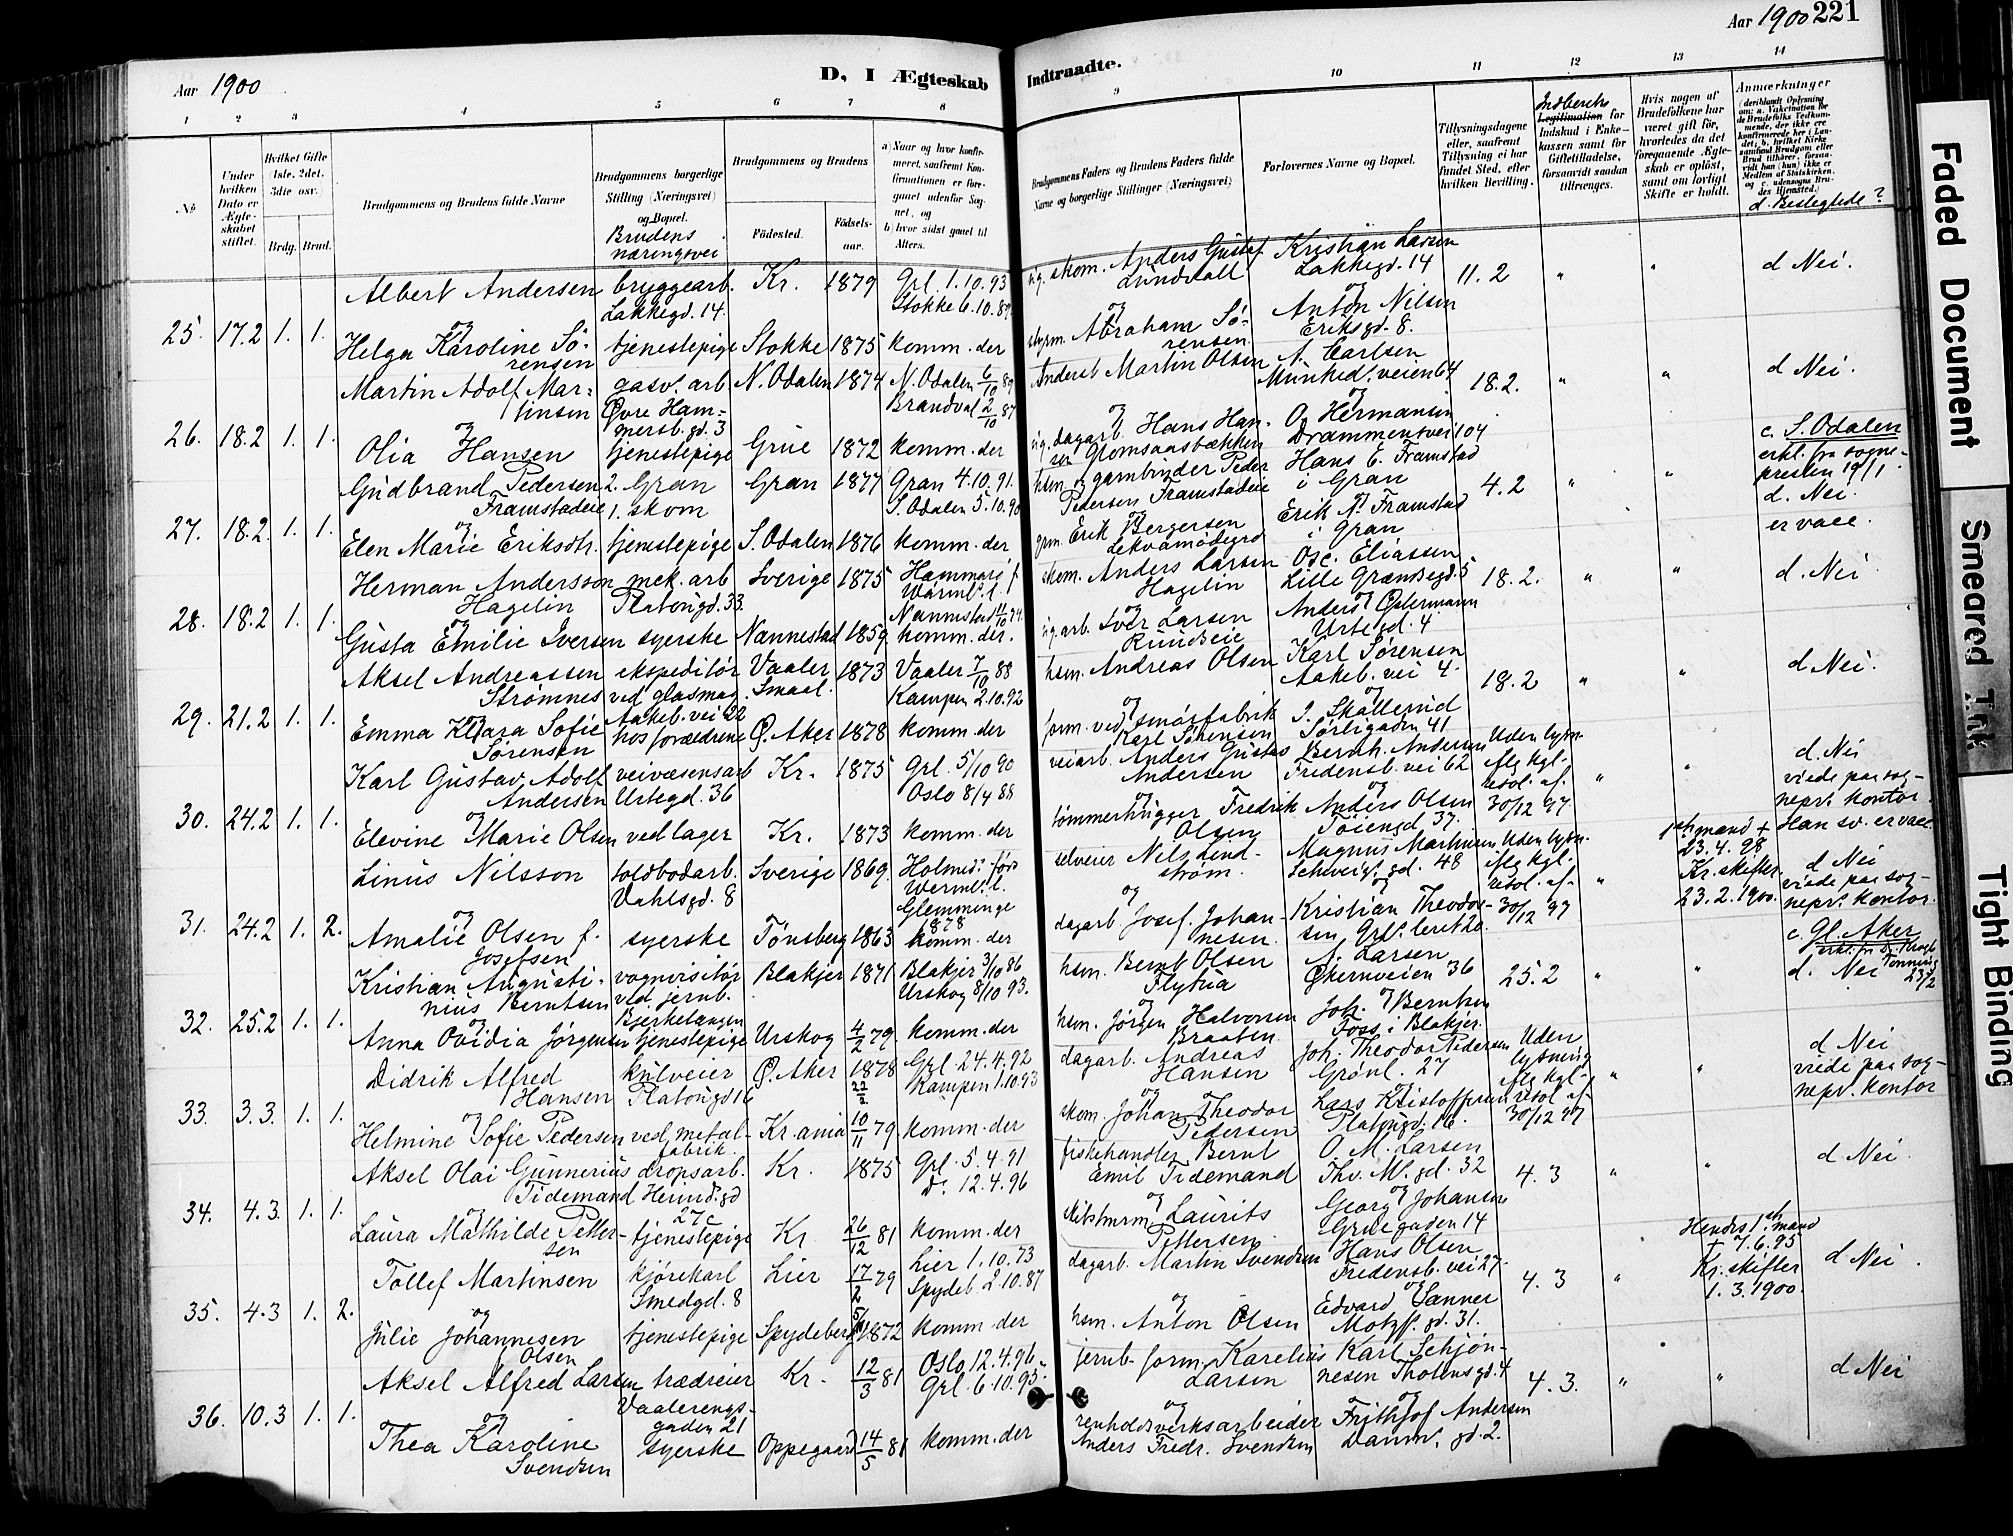 Aar 1900
D, I Ægteskab
Indtraadte.
Aar 1900 221
1 2 3 4 5 6 7 8 9 10 11 12 13 14
No.
Under hvilken Dato er Ægteskabet stiftet.
Hvilket Gifte (1ste, 2det, 3die osv.)
Brdg. Brud.
Brudgommens og Brudens fulde Navne
Brudgommens borgerlige Stilling (Næringsvei) og Bopæl.
Brudens næringsvei
Brudgommens og Brudens
Födested.
Födselsaar.
a) Naar og hvor konfirmeret, samt om Konfirmationen er foregaaet udenfor Sognet, og b) hvor sidst gaaet til Alters.
Brudgommens Faders og Brudens Faders fulde Navne og borgerlige Stillinger (Næringsvei)
Forlovernes Navne og Bopæl.
Tillysningsdagene eller, saafremt Tillysning ei har fundet Sted, efter hvilken Bevilling.
Indberetn. Legitimation for Indskud i Enkekassen samt for Giftetilladelse, forsaavidt saadan tiltrænges.
Hvis nogen af Brudefolkene har været gift før, hvorledes da det foregaaende Ægteskab er opløst, samt om lovligt Skifte er holdt.
Anmærkninger
d. Beslegtede?
25. 17.2 1. 1.
Albert Andersen bryggearb. Lakkegd. 14. Kr. 1879 Grl. 1.10.93 Stokke 6.10.89
skom. Anders Gustaf Lundvall Kristian Larsen Lakkegd. 14 11.2 " " d Nei.
og
Helga Karoline Sörensen tjenestepige Stokke 1875 komm. der
styrm. Abraham Sörensen Anton Nilsen Eriksgd. 8.
26. 18.2 1. 1.
Martin Adolf Martinsen gasv. arb Øvre Hammersb. gd. 3 N. Odalen 1874 N. Odalen 6/10 89 Brandval 2/10 87
Anderst Martin Olsen A. Carlsen Munked. veien 64 18.2. " " d Nei.
og
Olia Hansen tjenestepige Grue 1872 komm. der
dagarb. Hans Hansen Glomsaasbækken O. Hermansen Drammensvei 104
27. 18.2. 1. 1.
Gudbrand Pedersen Framstadeie 2. Gran 1. skom Gran 1877 Gran 4.10.91. S. Odalen 5.10.90
hsm. og garnbinder Peder Pedersen Framstadeie Hans E. Framstad i Gran 4.2 " "
c. S. Odalen erkl. fra sognepresten 19/1. d. Nei. er vacc.
og
Elen Marie Eriksdtr. tjenestepige S. Odalen 1876 komm. der
grm. Erik Bergersen Erik N. Framstad i Gran
28. 18.2 1. 1.
Herman Andersson Hagelin mek. arb Platougd. 33. Sverige 1875 Hammarö f. Wärml. l. Nannestad 11/10 94.
skom. Anders Larsen Hagelin Osc. Eliassen Lille Grændsegd. 5 18.2. " " d. Nei
og
Gusta Emilie Iversen syerske Nannestad 1859 komm. der.
arb. Iver Larsen Ruudseie Anders Østermann Urtegd. 4
29. 21.2 1. 1.
Aksel Andreassen Strømnes ekspeditør ved glasmag. Aakeb. vei 22 Vaaler Smaal. 1873 Vaaler 7/10 88 Kampen 2.10.92
hsm. Andreas Olsen Karl Sørensen Aakeb. vei 4. 18.2 " " d Nei.
og
Emma Klara Sofie Sørensen hos forældrene Ø. Aker 1878 komm. der
form. ved smørfabrik Karl Sörensen J. Skallerud Sørligaden 41
30. 24.2 1. 1.
Karl Gustav Adolf Andersen veivæsensarb Urtegd. 36 Kr. 1875 Grl. 5/10 90 Oslo 8/4 88
veiarb. Anders Gustav Andersen Bernh. Andersen Fredensb. vei 62 Uden lysn. flg kgl. resol. af. 30/12 97. " "
d. Nei viede paa sognepr. kontor. Han sv. er vacc.
og
Elevine Marie Olsen ved lager Kr. 1873 komm. der
tömmerhugger Fredrik Olsen Anders Olsen Töiengd 37.
31. 24.2 1. 2.
Linus Nilsson toldbodarb. Vahlsgd. 8 Sverige 1869 Holmed. förs Wermb. l. Glemminge 1878
selveier Nils Lindström. Magnus Martinsen Schweig. gd. 48 Uden lysn. flg kgl. resol. af. 30/12 97 "
1ste mand + 23.4.98 Kr. skifter. 23.2.1900.
d Nei viede paa sognepr. kontor.
og
Amalie Olsen f. Josefsen syerske Tönsberg 1863 komm. der
dagarb Josef Johannesen. Kristian Theodorsen, Grl. leret 20.
32. 25.2 1. 1.
Kristian Augustinius Berntsen vognvisitör ved jernb. Bjerkelangen Blakjer 1871 Blakjer 3/10 86 Urskog 8/10 93.
hsm. Bernt Olsen Flytua A. Larsen Økernveien 36 25.2 " "
c. Gl. Aker d. Nei 23/2
og
Anna Ovidia Jörgensen tjenestepige Urskog 4/2 79. komm. der
hsm. Jörgen Halvorsen Braaten Joh. Berntsen Foss i Blakjer.
33. 3.3. 1. 1.
Didrik Alfred Hansen kulveier Platougd 16 Ø. Aker 1878 22/2 Grl. 24.4.92 Kampen 1.10.93
dagarb. Andreas Hansen Joh. Theodor Pedersen Grönl. 27 Uden lysning flg kgl. resol af 30/12 97 " "
d Nei viede paa sognepr. kontor
og
Helmine Sofie Pedersen ved metalfabrik. Kr.ania 10/11 79 komm. der
skom. Johan Theodor Pedersen Lars Kristoffersen Platougd. 16.
34. 4.3. 1. 1.
Aksel Olai Gunnerius Tidemand dropsarb. Herm. gd 27 c Kr. 1875 Grl. 5.4.91 D. 12.4.96
fiskehandler Bernt Emil Tidemand O. M. Larsen Thv. M. gd. 32 4.3 " " d Nei
og
Laura Mathilde Pettersen tjenestepige Kr 26/12 81 komm. der
Laurits Pettersen. Georg Johansen Grue gaden 14
35. 4.3 1. 2.
Tollef Martinsen kjörekarl Smedgd. 8 Lier 17/2 79 Lier 1.10.73 Spydeb. 2.10.87
dagarb. Martin Svendsen Hans Olsen Fredensb. vei 27. 4.3 "
Hendes 1ste mand + 7.6.95 Kr. skifter 1.3.1900. d Nei.
og
Julie Johannesen f Olsen tjenestepige Spydeberg 1872 komm. der
hsm. Anton Olsen Edvard Sanner Motzf. gd. 31.
36. 10.3 1. 1.
Aksel Alfred Larsen trædreier Vaalerengsgaden 21 Kr. 12/3 81 Oslo 12.4.96. Grl. 6.10.95.
jernb. form. Karelius Larsen Karl Schjönnesen Tholensgd. 4 4.3. " " d Nei
og
Thea Karoline Svendsen syerske Oppegaard 14/5 81 komm. der
renholdsverksarbeider Anders Fredr. Svendsen Frithjof Andersen Danm. gd. 2.
Faded Document
Smeared Ink
Tight Binding